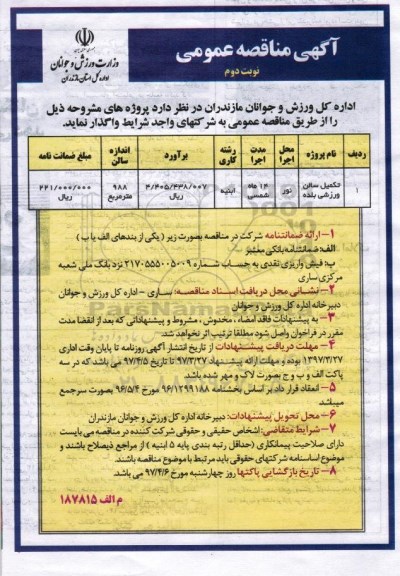 آگهی مناقصه عمومی
نوبت دوم
وزارت ورزش و جوانان
اداره کل استان مازندران
اداره کل ورزش و جوانان مازندران در نظر دارد پروژه های مشروحه ذیل
را از طریق مناقصه عمومی به شرکتهای واجد شرایط واگذار نماید.
ردیف نام پروژه محل اجرا مدت اجرا رشته کاری برآورد اندازه سالن مبلغ ضمانت نامه
۱ تکمیل سالن ورزشی بلده نور ۱۲ ماه شمسی ابنیه ۴/۴۰۵/۴۳۸/۰۰۷ ریال ۹۸۸ مترمربع ۲۲۱/۰۰۰/۰۰۰ ریال
۱- ارائه ضمانتنامه شرکت در مناقصه بصورت زیر ( یکی از بندهای الف یا ب )
الف: ضمانتنامه بانکی معتبر
ب: فیش واریزی نقدی به حساب شماره ۲۱۷۰۵۵۵۰۰۵۰۰۹ نزد بانک ملی شعبه
مرکزی ساری
۲- نشانی محل دریافت اسناد مناقصه: ساری - اداره کل ورزش و جوانان
دبیرخانه اداره کل ورزش و جوانان
۳- به پیشنهادات فاقد امضاء، مخدوش، مشروط و پیشنهاداتی که بعد از انقضا مدت
مقرر در فراخوان واصل شود مطلقا ترتیب اثر نخواهد شد.
۴- مهلت دریافت پیشنهادات از تاریخ انتشار آگهی روزنامه تا پایان وقت اداری
۱۳۹۷/۳/۲۷ بوده و مهلت ارائه پیشنهاد ۹۷/۳/۲۷ تا ۹۷/۴/۵ می باشد که در سه
پاکت الف و ب و ج بصورت لاک و مهر شده باشد.
۵- انعقاد قرار داد بر اساس بخشنامه ۹۶/۱۲۹۹۱۸۸ مورخ ۹۶/۵/۴ بصورت سرجمع
میباشد
۶- محل تحویل پیشنهادات: دبیرخانه اداره کل ورزش و جوانان مازندران
۷- شرایط متقاضی: اشخاص حقیقی و حقوقی شرکت کننده در مناقصه می بایست
دارای صلاحیت پیمانکاری (حداقل رتبه بندی پایه ۵ ابنیه ) از مراجع ذیصلاح باشند و
موضوع اساسنامه شرکتهای حقوقی باید مرتبط با موضوع مناقصه باشند.
۸- تاریخ بازگشایی پاکتها روز چهارشنبه مورخ ۹۷/۴/۶ می باشد.
م الف ۱۸۷۸۱۵